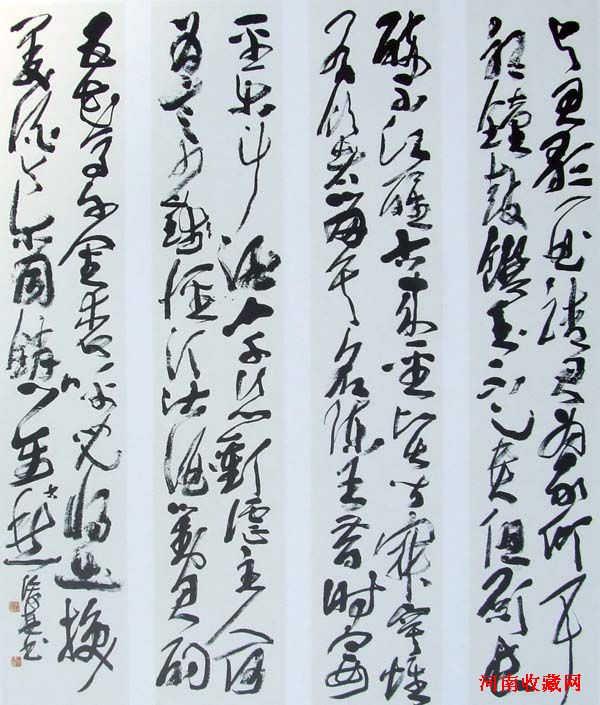 与君歌一曲请君为我耳
听钟鼓馔玉不足贵但愿长
醉不醒古来圣贤皆寂寞惟
有饮者留其名陈王昔时宴
平乐斗酒十千恣欢谑主人何
为言少钱径须沽酒对君酌
五花马千金裘呼儿将出换
美酒与尔同销万古愁
书
河南收藏网